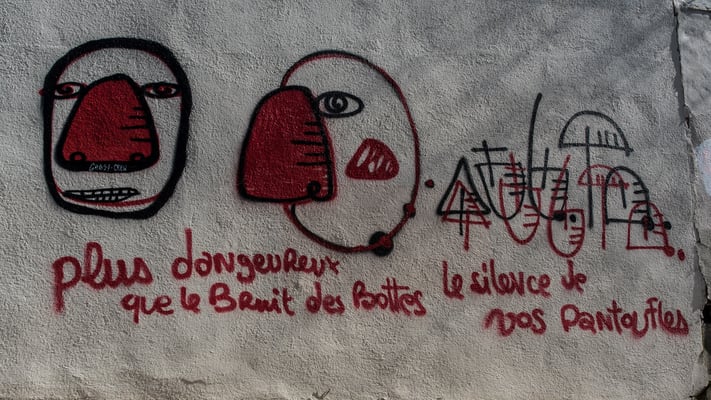 plus dangeureux
que le Bruit des Bottes
le silence de
vos pantoufles